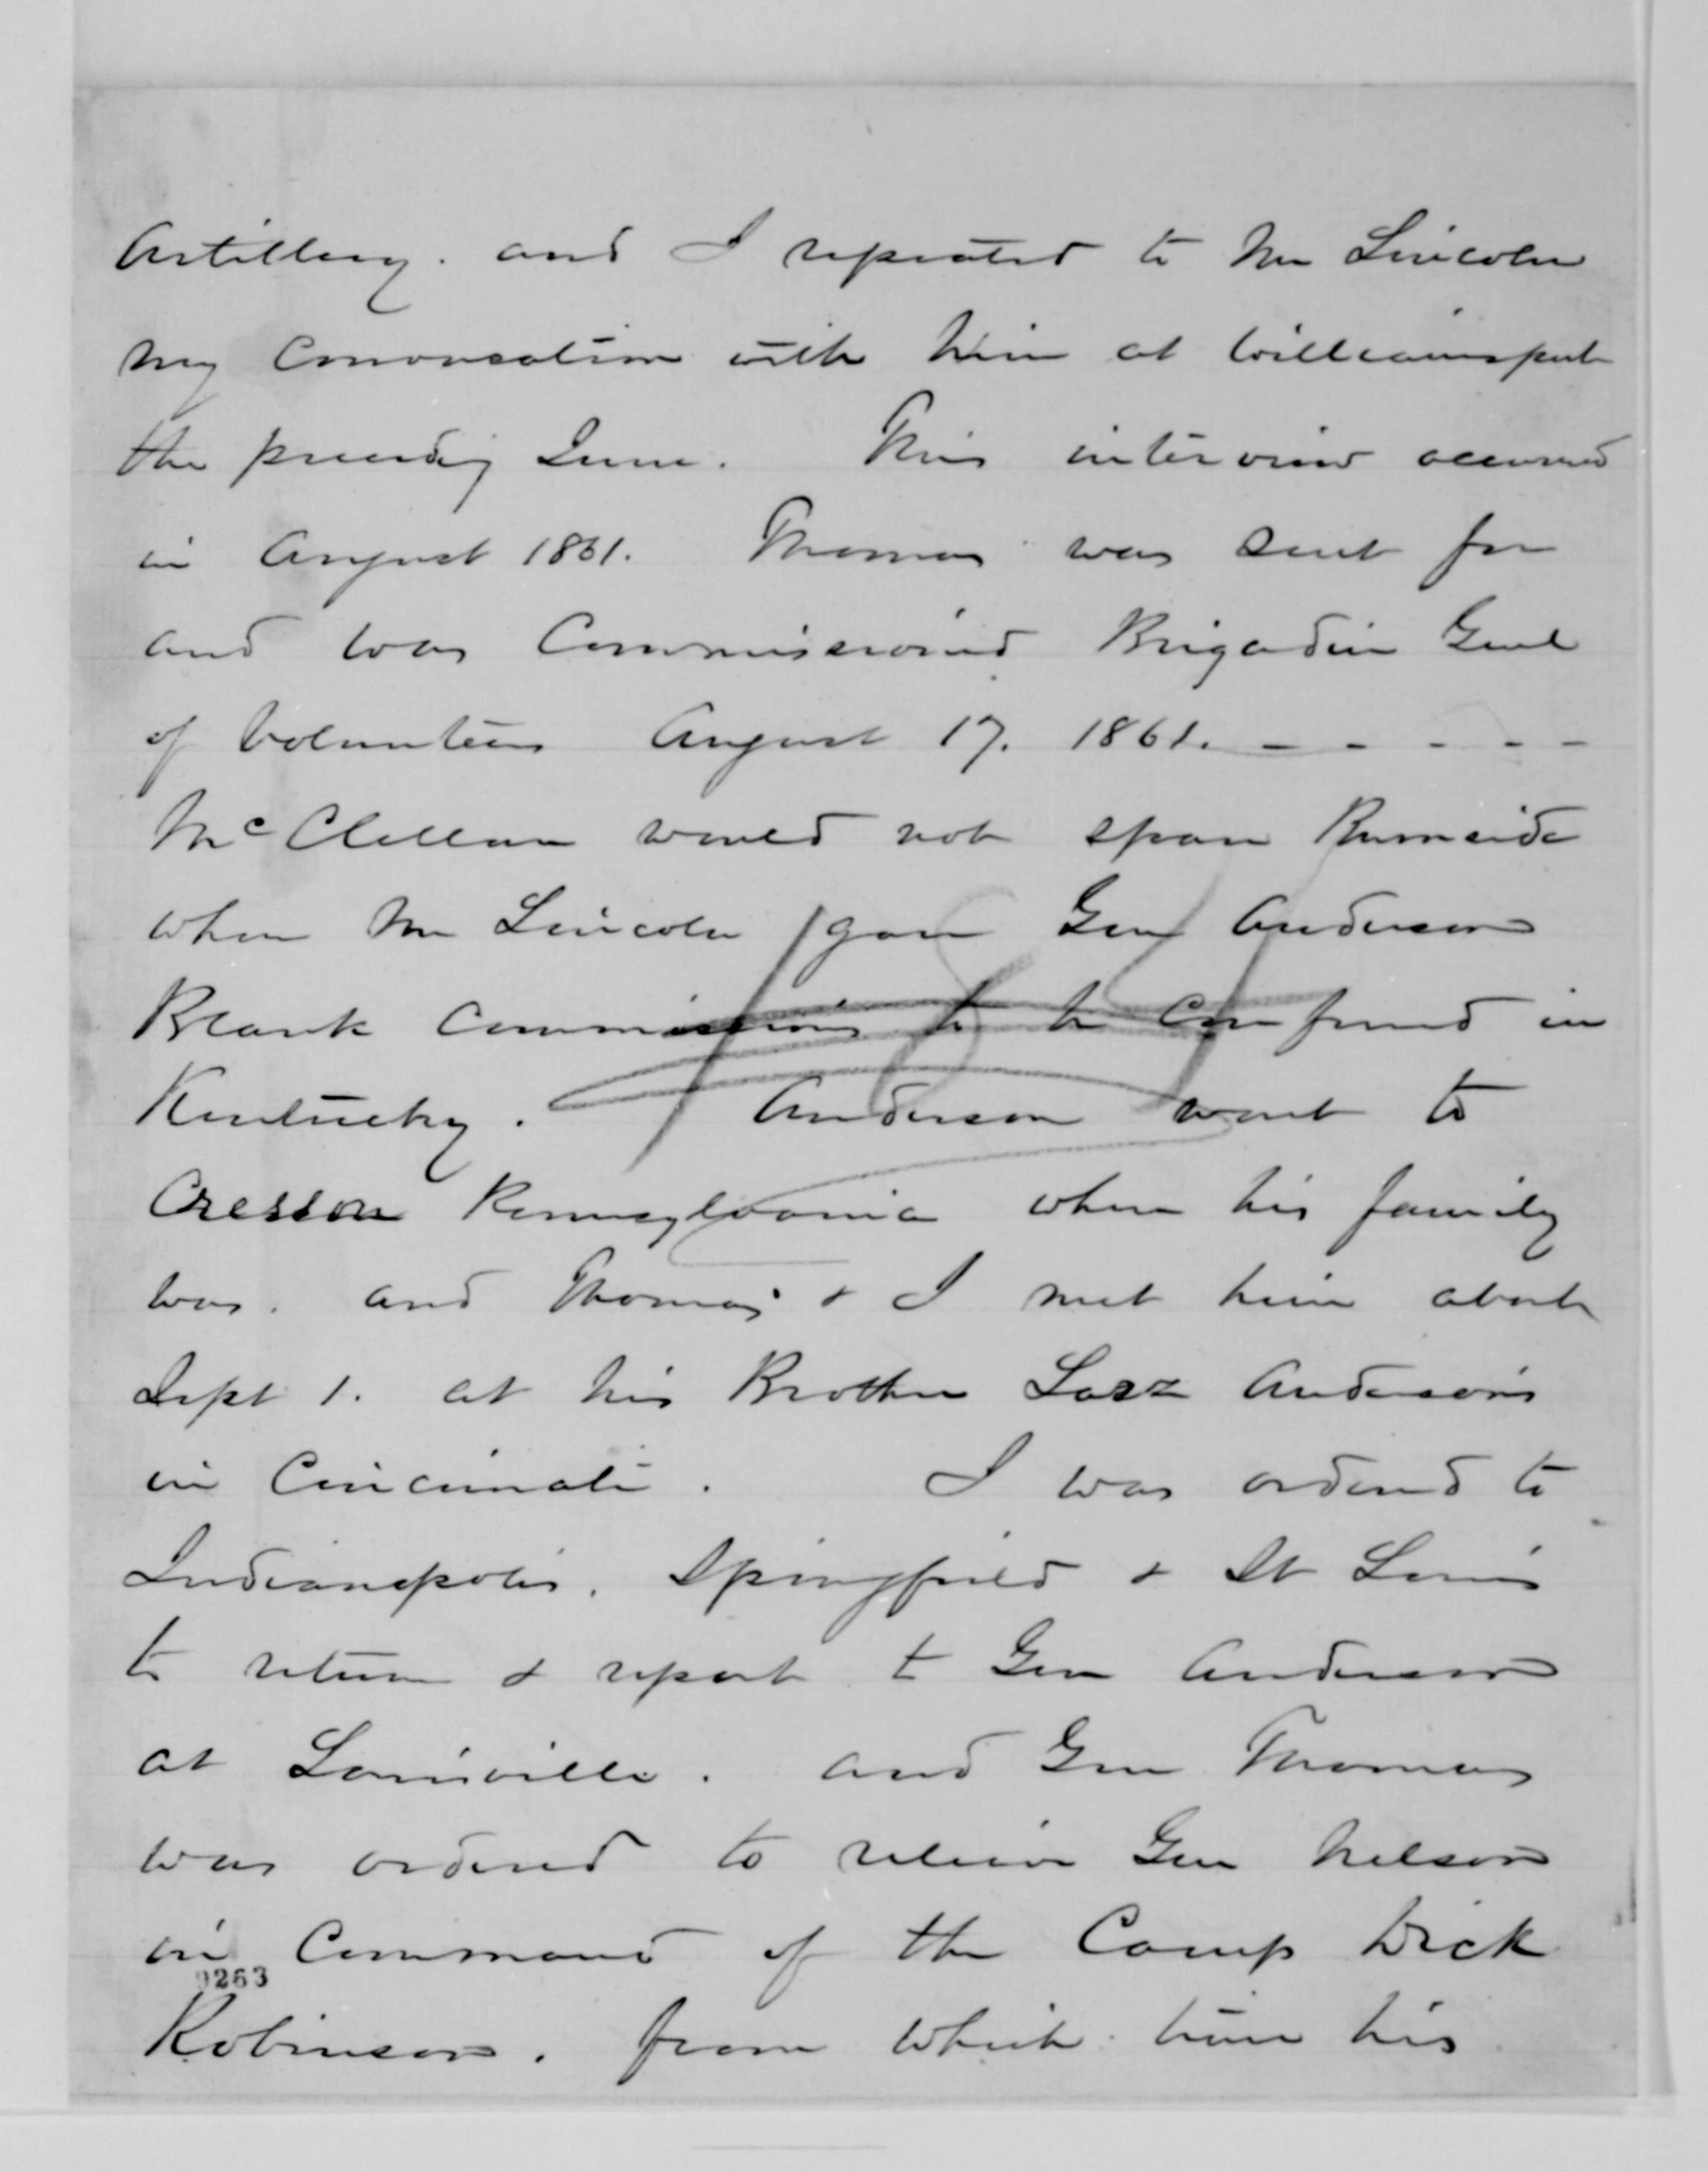 Artillery. and I repeated to Mr Lincoln
my Conversation with him at Williamsport
the preceding June. This interview occurred
in August 1861. Thomas was sent for
and was Commissioned Brigadier Genl
of Volunteers August 17. 1861. - - - - -
McClellan would not spare Burnside
when Mr Lincoln gave Genl Anderson
Blank Commissions to be Conferred in
Kentucky. Anderson went to
Cresson Pennsylvania where his family
was. and Thomas & I met him about
Sept 1. at his Brother Larz Anderson's
in Cincinnati. I was ordered to
Indianapolis. Springfield & St Louis
to return & report to Gen Anderson
at Louisville. and Gen Thomas
was ordered to relieve Gen Nelson
in Command of the Camp Dick
0263
Robinson. from which time his